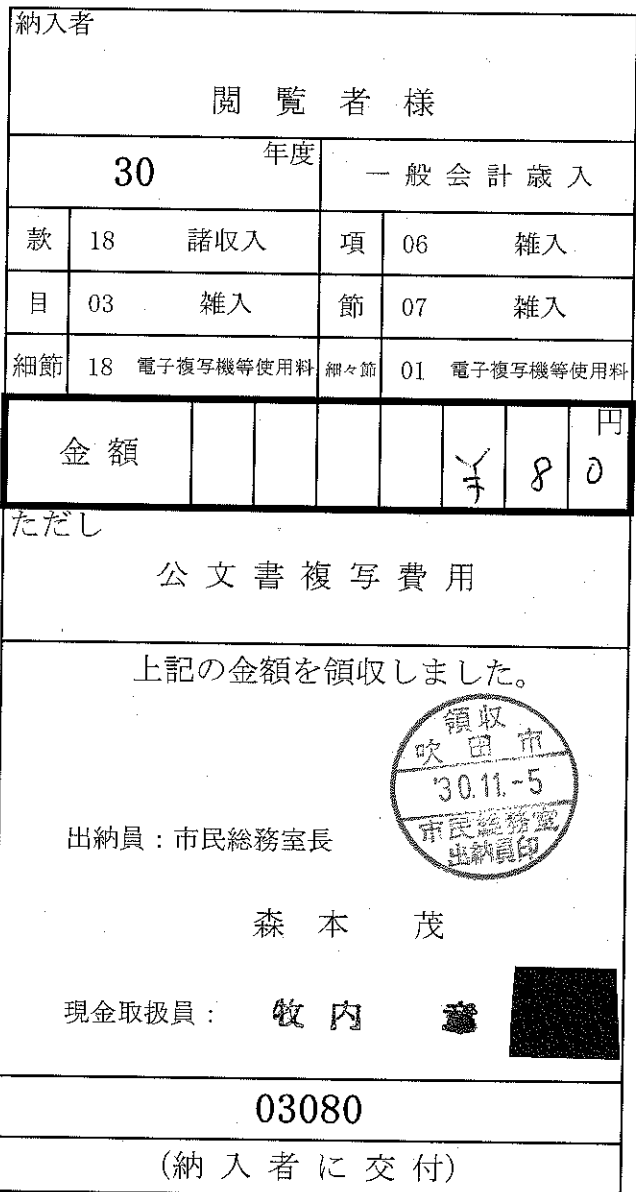 納入者
閲覧者様
30 年度 一般会計歳入
款 18 諸収入 項 06 雑入
目 03 雑入 節 07 雑入
細節 18 電子複写機等使用料 細々節 01 電子複写機等使用料
金額 ¥80円
ただし
公文書複写費用
上記の金額を領収しました。
領収
吹田市
'30.11.-5
市民総務室
出納員印
出納員：市民総務室長
森本 茂
現金取扱員： 牧内
03080
(納入者に交付)